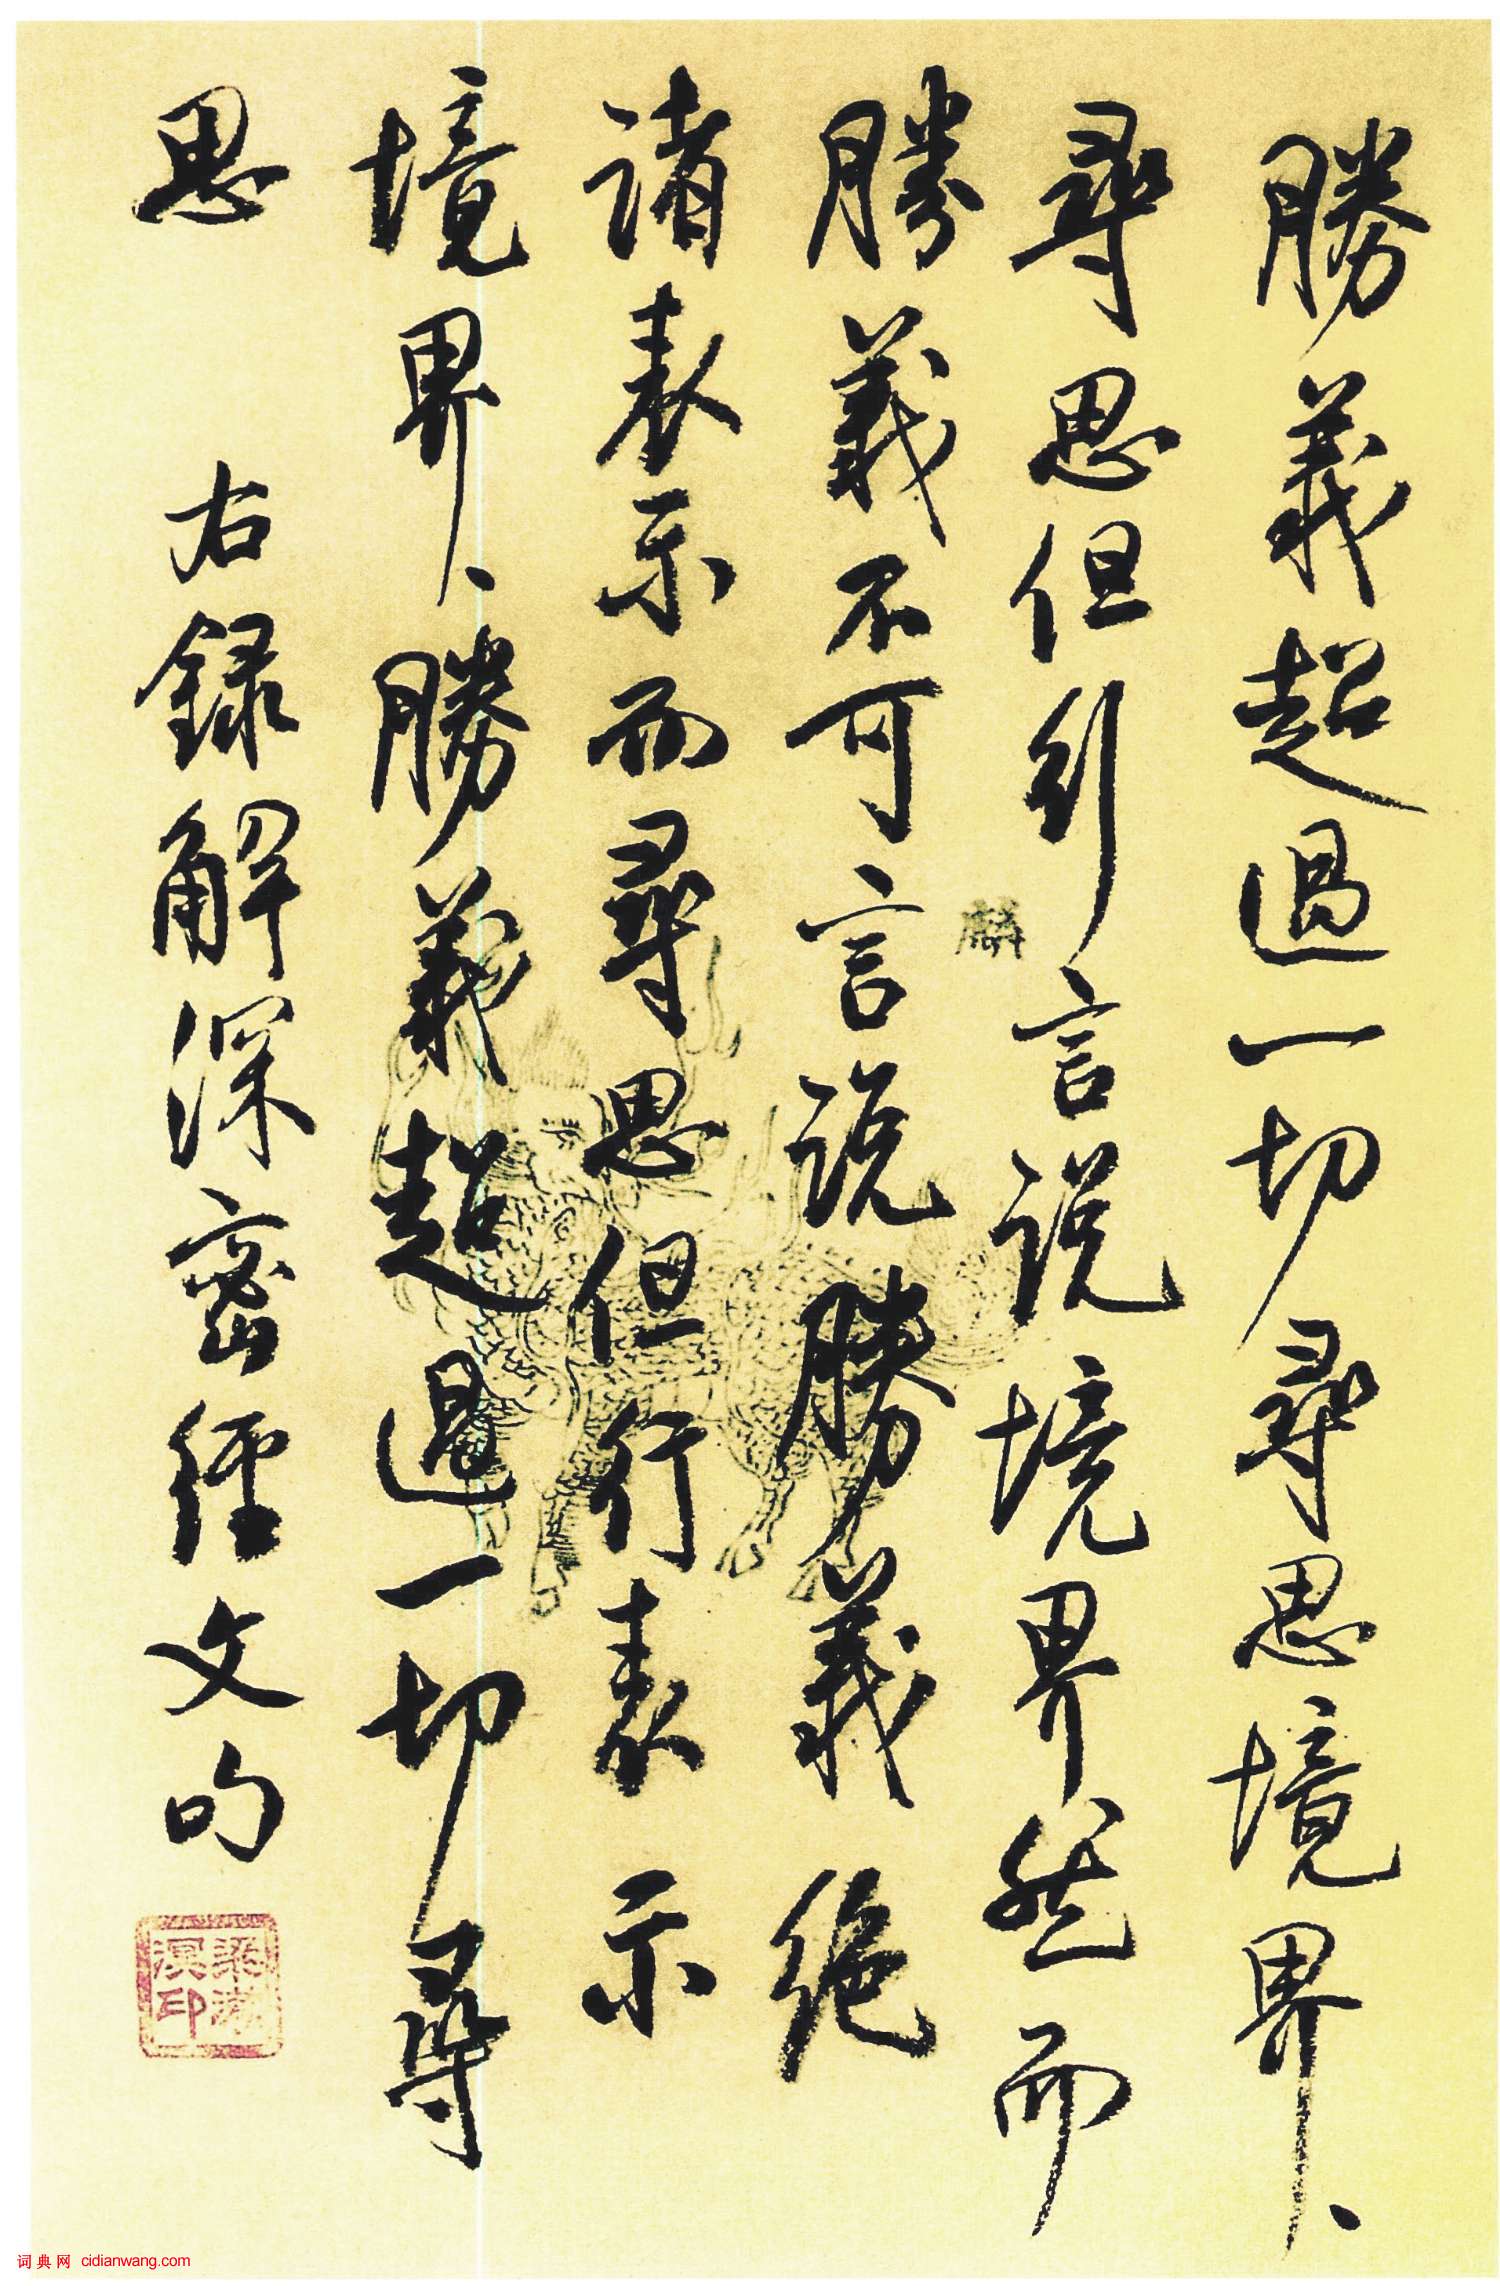 勝義超過一切尋思境界、
尋思但行言說境界然而
勝義不可言說勝義絕
諸表示而尋思但行表示
境界、勝義超過一切尋
思
右録解深密經文句
梁漱溟印
麟
词典网 cidianwang.com